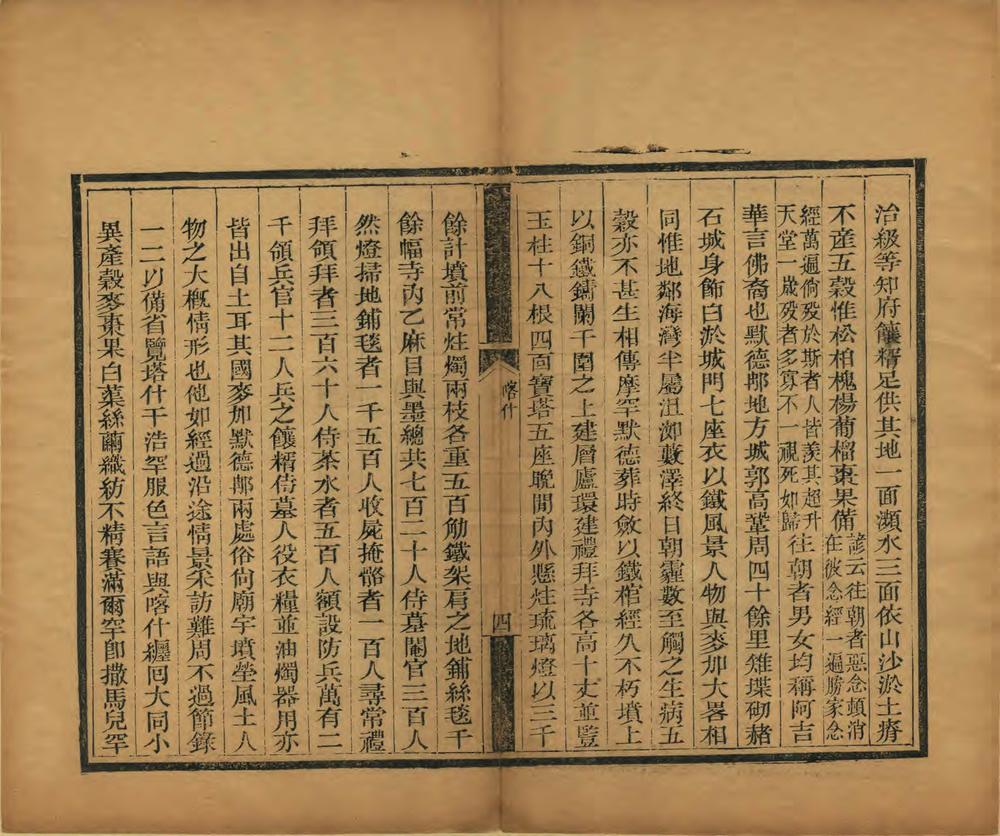 治級等知府饟糈足供其地一面瀕水三面依山沙淤土瘠
不產五穀惟松柏槐楊葡榴棗果備諺云往朝者惡念頓消在彼念經一遍勝家念
經萬遍倘歿於斯者人皆羨其超升天堂一歲歿者多寡不一視死如歸往朝者男女均稱阿吉
華言佛裔也默德那地方城郭高鞏周四十餘里雉堞砌赭
石城身飾白淤城門七座衣以鐵風景人物與麥加大畧相
同惟地鄰海灣半屬沮洳藪澤終日朝霾數至觸之生病五
穀亦不甚生相傳摩罕默德葬時斂以鐵棺經久不朽墳上
以銅鐵鑄闌干圍之上建層廬環建禮拜寺各高十丈並豎
玉柱十八根四面寶塔五座聯間內外懸炷琉璃燈以三千
喀什
四
餘計墳前常炷燭兩枝各重五百觔鐵架肩之地鋪絲毯千
餘幅寺內乙麻目與墨總共七百二十人侍墓閹官三百人
然燈掃地鋪毯者一千五百人收屍掩骼者一百人尋常禮
拜領拜者三百六十人侍茶水者五百人額設防兵萬有二
千領兵官十二人兵之饟糈侍墓人役衣糧並油燭器用亦
皆出自土耳其國麥加默德那兩處俗尙廟宇墳塋風土人
物之大概情形也他如經過沿途情景采訪難周不過節錄
一二以備省覽塔什干浩罕服色言語與喀什纏回大同小
異產穀麥棗果白菜絲繭織紡不精賽滿爾罕卽撒馬兒罕